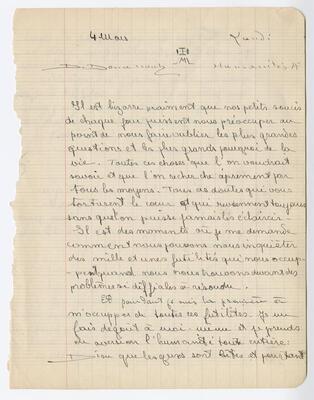 4 Mars Lundi
III
ML
D. Humanités A
Il est bizarre vraiment que nos petits soucis
de chaque jour puissent nous préoccuper au
point de nous faire oublier les plus grandes
questions et les plus grands pourquoi de la
vie. Toutes ces choses que l'on voudrait
savoir et que l'on recherche âprement par
tous les moyens. Tous ces doutes qui vous
torturent le cœur et qui reviennent toujours
sans qu'on puisse jamais les éclaircir.
Il est des moments où je me demande
comment nous pouvons nous inquiéter
des mille et unes futilités qui nous occup-
-pent quand nous nous trouvons devant des
problèmes si difficiles à résoudre.
Et pourtant je suis la première à
m'occuper de toutes ces futilités. Je me
fais dégoût à moi-même et je prends
en aversion l'humanité toute entière.
Dieu que les gens sont bêtes et pourtant